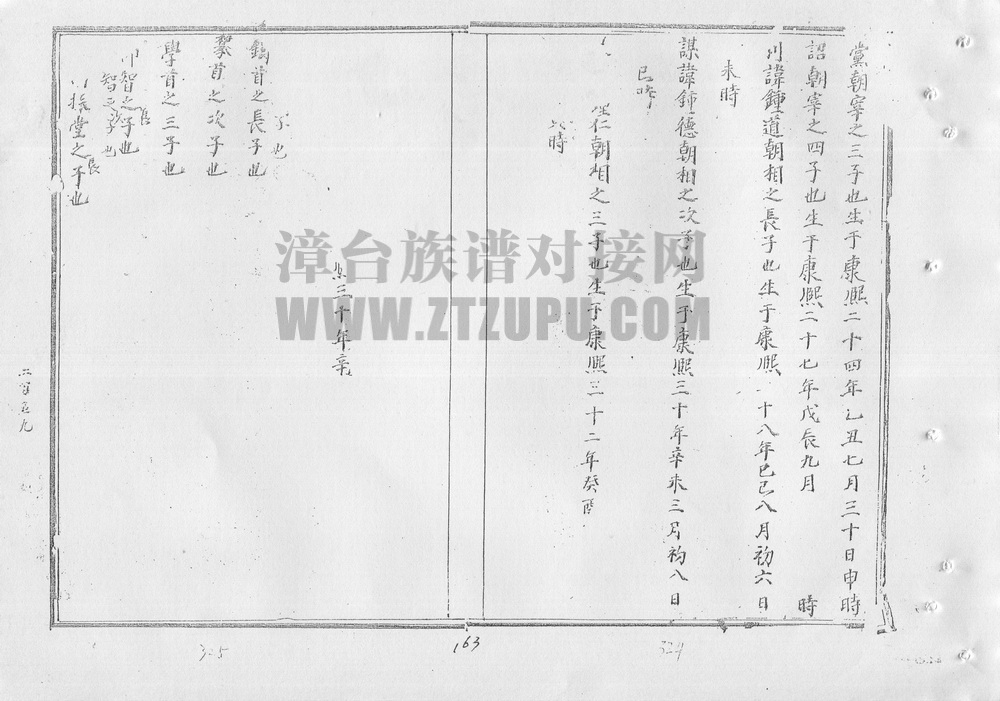 黨朝宰之三子也生于康熙二十四年乙丑七月三十日申時
詔朝宰之四子也生于康熙二十七年戊辰九月 時
諱鍾道朝相之長子也生于康熙 十八年己巳八月初六日
未時
謀諱鍾德朝相之次子也生于康熙三十年辛未三月初八日
巳時
仁朝相之三子也生于康熙三十二年癸酉
時
熙三十年辛
子也
首之長子也
首之次子也
學首之三子也
智之長子也
智之次子也
堂之長子也
漳台族谱对接网
WWW.ZTZUPU.COM
163
324
325